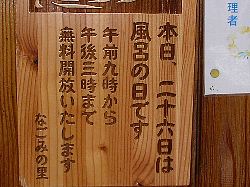 本日、二十六日は
風呂の日です
午前九時から
午後三時まで
無料開放いたします
なごみの里
理者